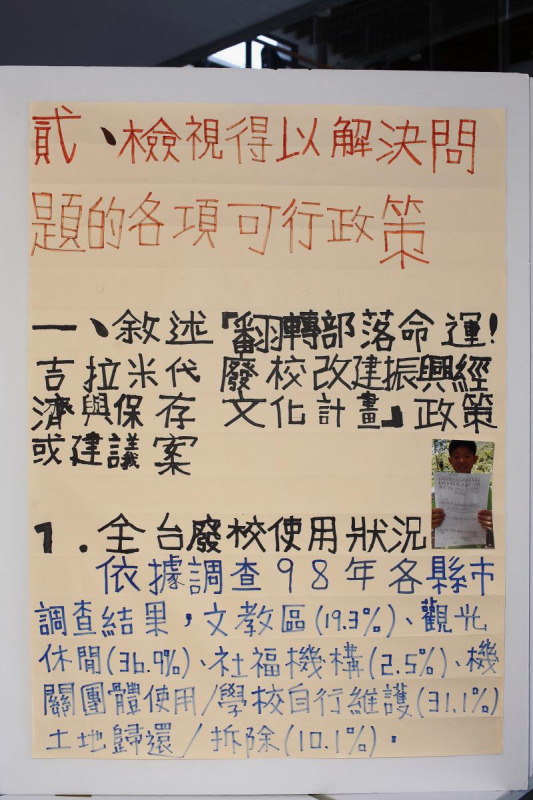 貳、檢視得以解決問
題的各項可行政策
一、敘述「翻轉部落命運!
吉拉米代 廢校改建振興經
濟與保存 文化計畫」政策
或建議案
1.全台廢校使用狀況
依據調查98年各縣市
調查結果,文教區(19.3%)、觀光
休閒(36.9%)、社福機構(2.5%)、機
關團體使用/學校自行維護(31.1%)
土地歸還/拆除(10.1%)。